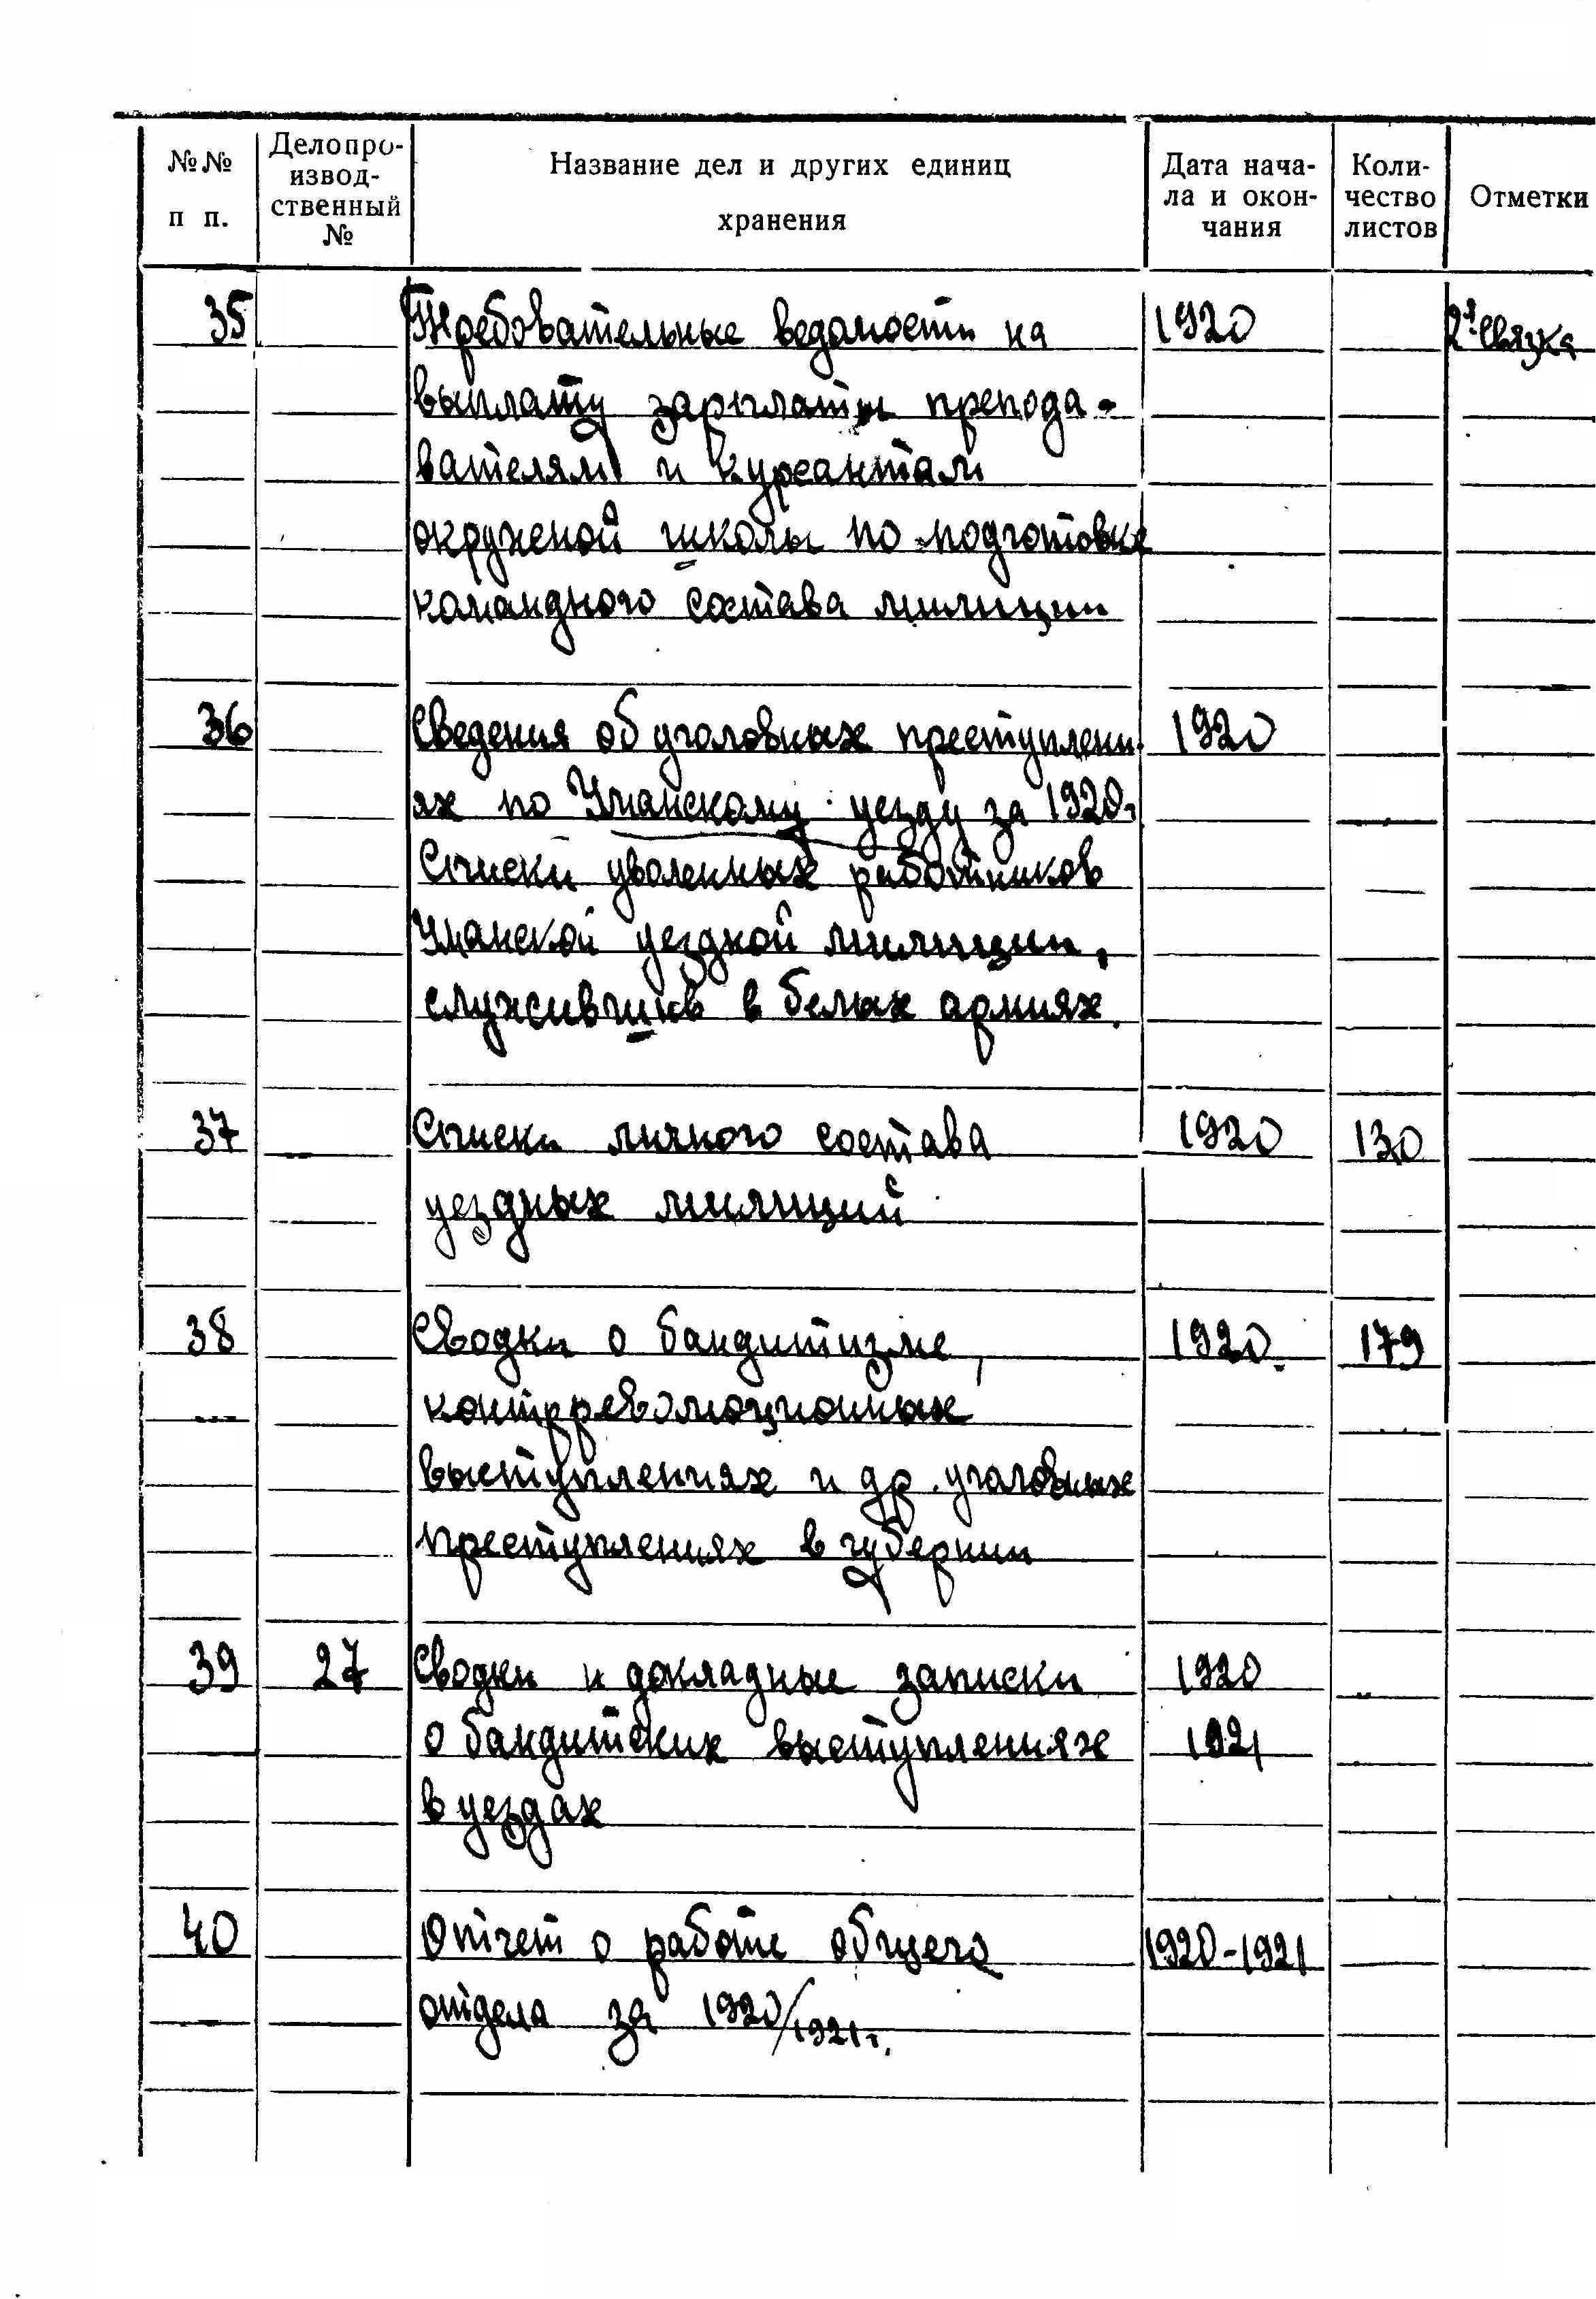 №№ п п.
Делопро-
извод-
ственный
№
Название дел и других единиц
хранения
Дата нача-
ла и окон-
чания
Коли-
чество
листов
Отметки
35 Требовательные ведомости на 1920 2я связка
выплату зарплаты препода-
вателям и курсантам
окружной школы по подготовке
командного состава милиции
36 Сведения об уголовных преступлени- 1920
ях по Уманскому уезду за 1920г.
Списки уволенных работников
Уманской уездной милиции,
служивших в белых армиях.
37 Списки личного состава 1920 130
уездных милиций
38 Сводки о бандитизме, 1920. 179
контрреволюционных
выступлениях и др. уголовных
преступлениях в губернии
39 27 Сводки и докладные записки 1920
о бандитских выступлениях 1921
в уездах
40 Отчет о работе общего 1920-1921
отдела за 1920/1921г.